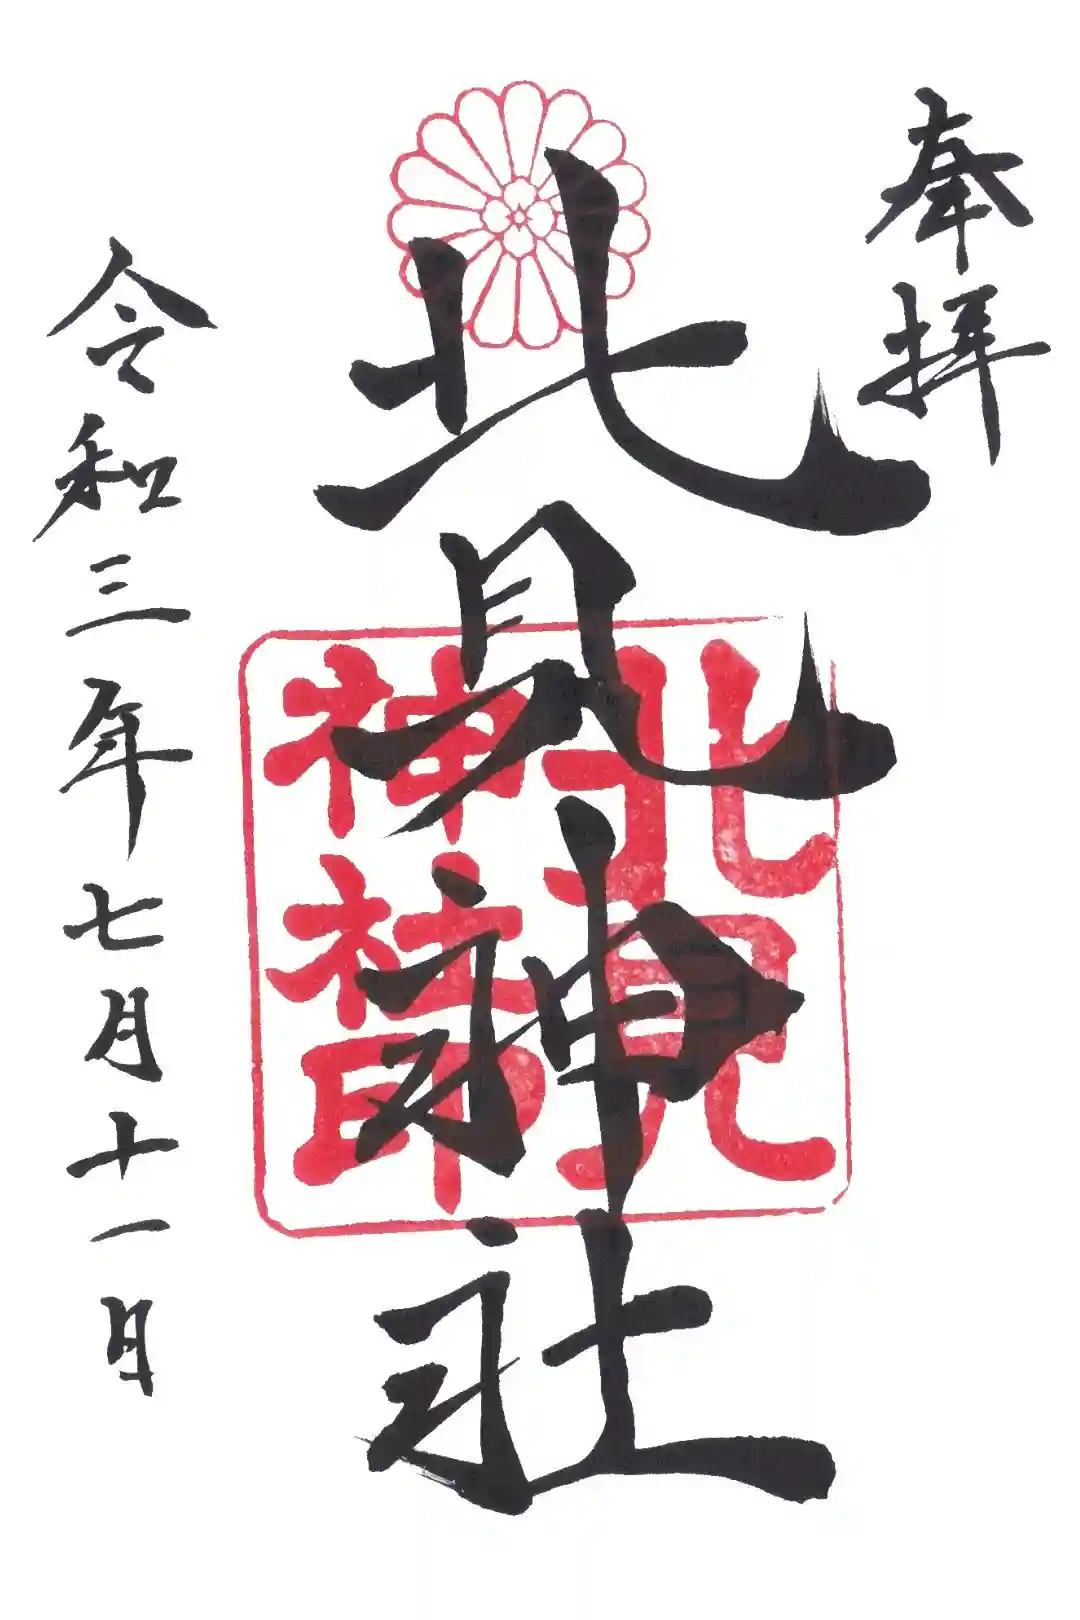 奉拝
北見神社
北見
神社印
令和三年七月十一日